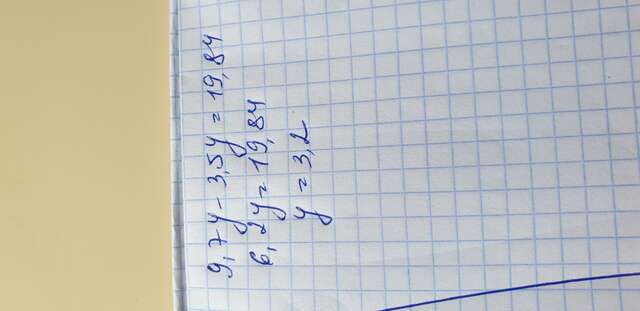 9,7y - 3,5y = 19,84
6,2y = 19,84
y = 3,2